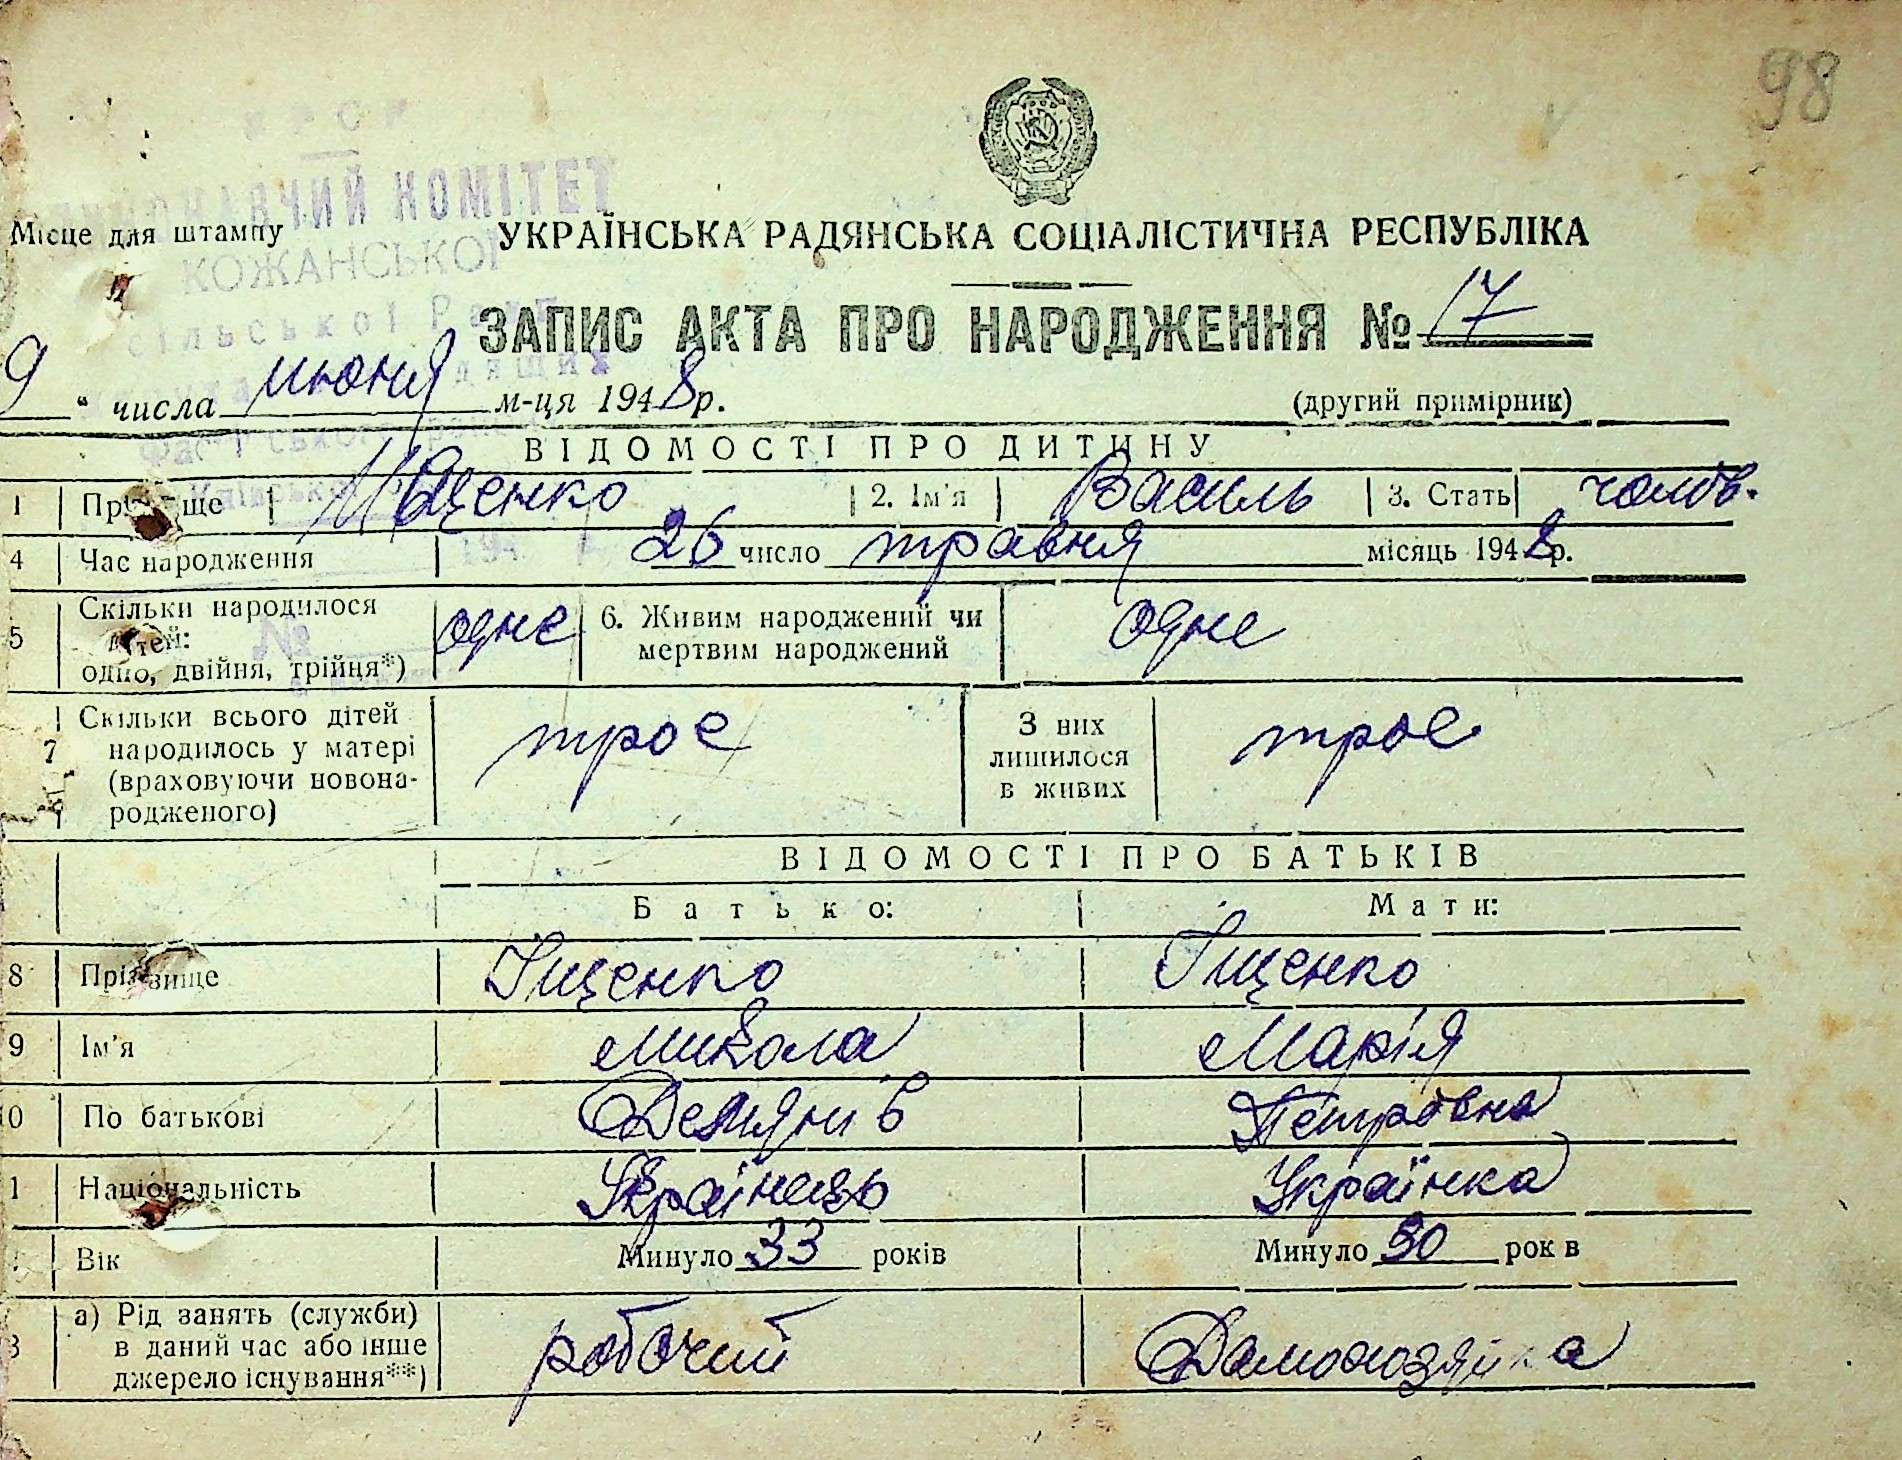 98
УРСР
ВИКОНАВЧИЙ КОМІТЕТ
Місце для штампу
КОЖАНСЬКОЇ
сільської Ради
УКРАЇНСЬКА РАДЯНСЬКА СОЦІАЛІСТИЧНА РЕСПУБЛІКА
ЗАПИС АКТА ПРО НАРОДЖЕННЯ № 17
9 " числа июня м-ця 1948 р.
(другий примірник)
ВІДОМОСТІ ПРО ДИТИНУ
1 Прізвище Іщенко 2. Ім'я Василь 3. Стать чолов.
4 Час народження 26 число травня місяць 1948 р.
5 Скільки народилося дітей: одно, двійня, трійня*) одне 6. Живим народжений чи мертвим народжений одне
7 Скільки всього дітей народилось у матері (враховуючи новонародженого) троє З них лишилося в живих троє
ВІДОМОСТІ ПРО БАТЬКІВ
Батько: Мати:
8 Прізвище Іщенко Іщенко
9 Ім'я Микола Марія
0 По батькові Демянів Петровна
1 Національність Українець Українка
Вік Минуло 33 років Минуло 30 рок в
3 а) Рід занять (служби) в даний час або інше джерело існування**) робочий Домохозяйка